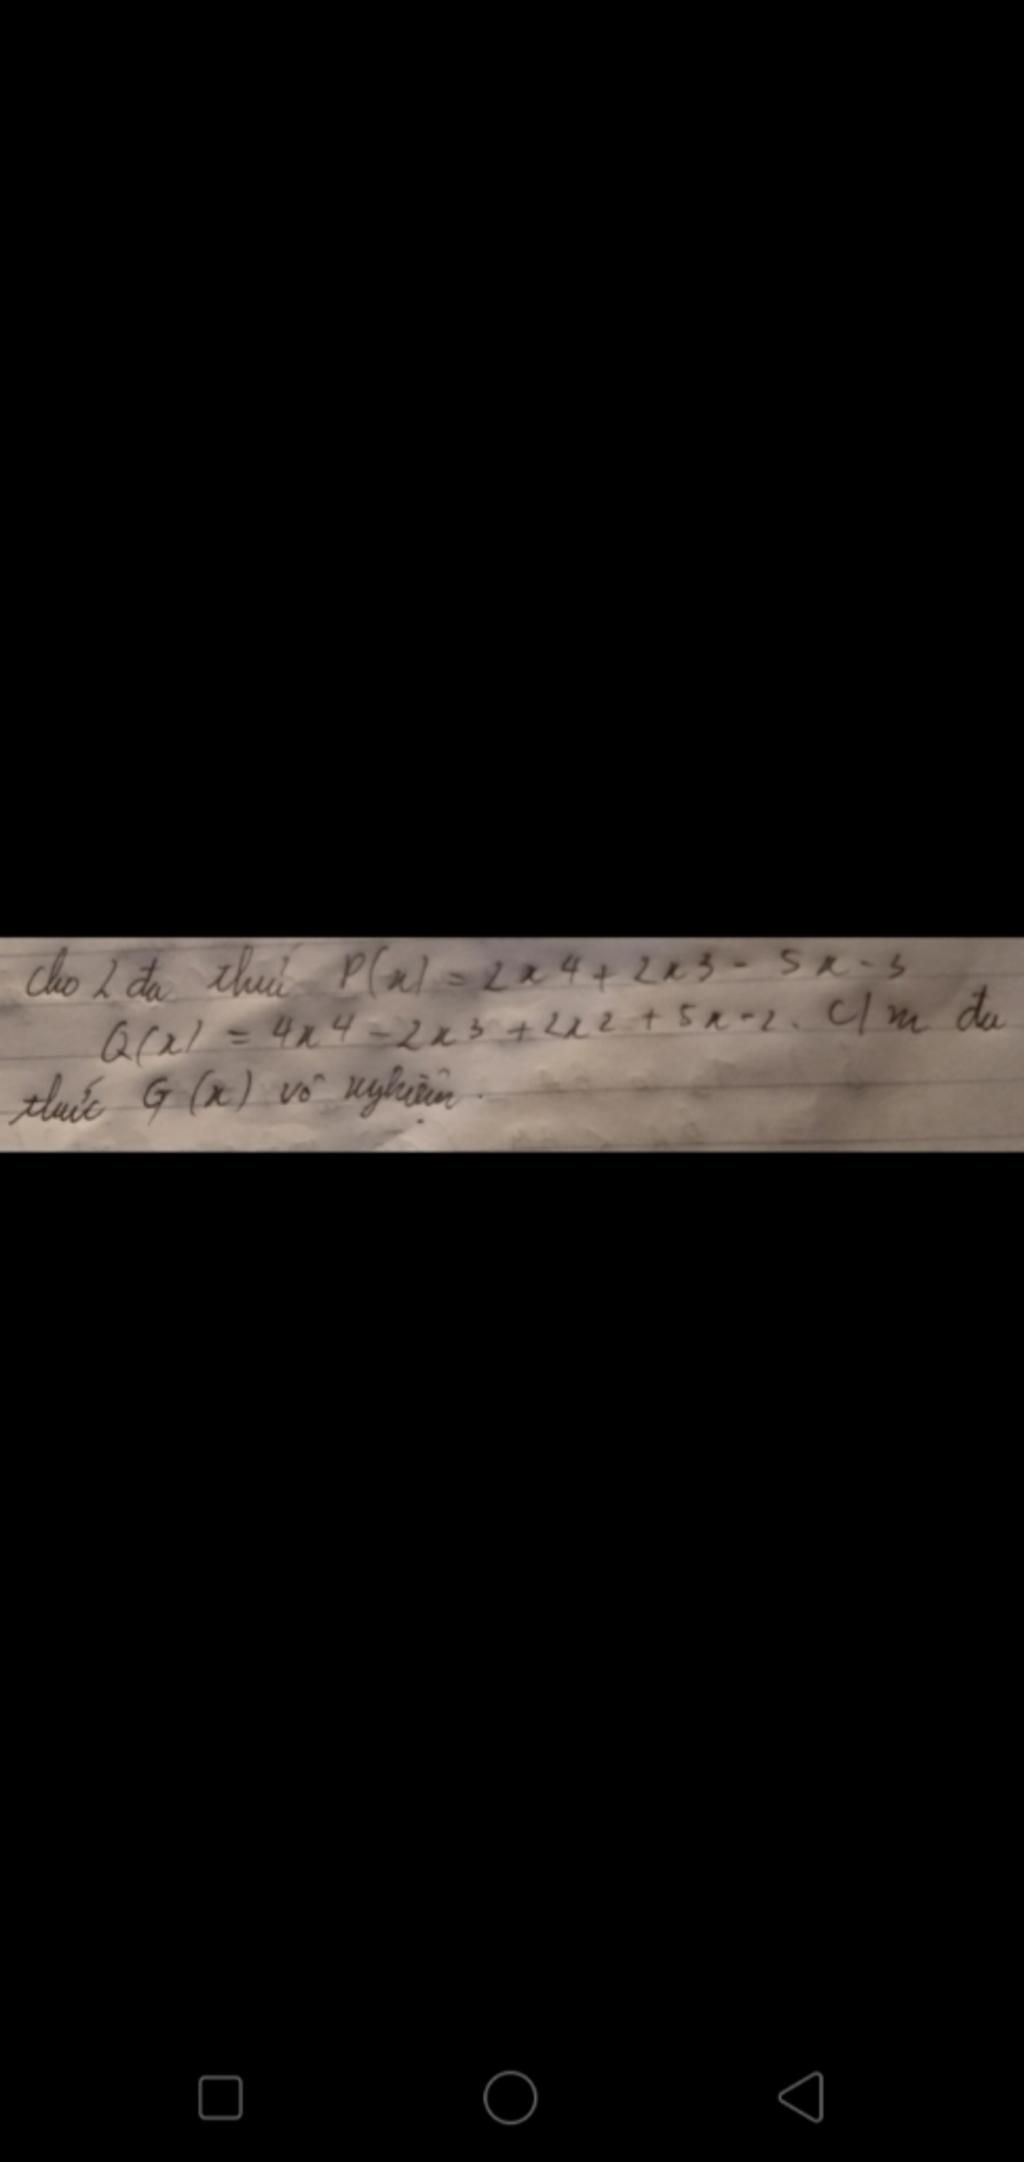 cho 2 đa thức P(x) = 2x4 + 2x3 - 5x - 3
Q(x) = 4x4 - 2x3 + 2x2 + 5x - 2. C/m đa
thức G(x) vô nghiệm.